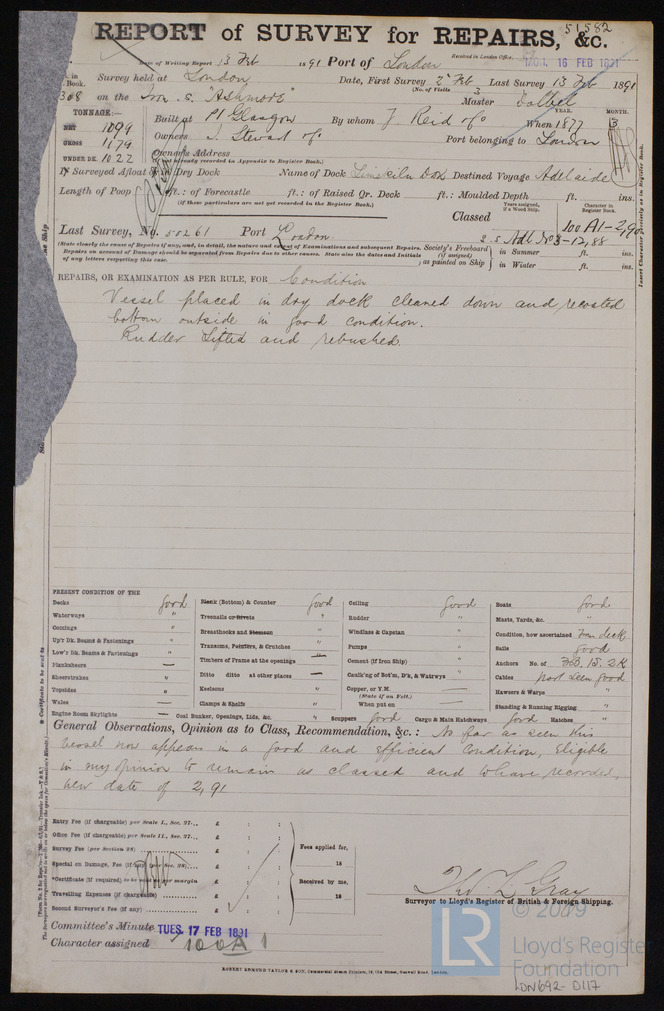 51582
REPORT of SURVEY for REPAIRS, &c.
Date of Writing Report 13 Feb 1891 Port of London Received in London Office, MON. 16 FEB 1891
in Book. Survey held at London Date, First Survey 2nd Feb Last Survey 13 Feb 1891
(No. of Visits 3
308 on the Iron S. "Ashmore" Master
TONNAGE:— Built at Pt Glasgow By whom J. Reid & Co When 1877 YEAR. MONTH.
NET 1099
GROSS 1179 Owners J. Stewart & Co Port belonging to London
UNDER DK. 1022 Owners' Address
(if not already recorded in Appendix to Register Book.)
If Surveyed Afloat or in Dry Dock Name of Dock Destined Voyage Adelaide
Length of Poop ft.: of Forecastle ft.: of Raised Qr. Deck ft.: Moulded Depth ft. ins.
(if these particulars are not yet recorded in the Register Book.)
Years assigned, if a Wood Ship. Character in Register Book.
Classed 100 A1-2,90
Last Survey, No. 50261 Port London
(State clearly the cause of Repairs if any, and, in detail, the nature and extent of Examinations and subsequent Repairs. Repairs on account of Damage should be separated from Repairs due to other causes. State also the dates and initials of any letters respecting this case.
Society's Freeboard (if assigned) as painted on Ship in Summer ft. ins.
in Winter ft. ins.
REPAIRS, OR EXAMINATION AS PER RULE, FOR Condition
Vessel placed in dry dock cleaned down and recoated
bottom outside in good condition.
Rudder Lifted and rebushed
PRESENT CONDITION OF THE
Decks good
Waterways "
Comings "
Up'r Dk. Beams & Fastenings "
Low'r Dk. Beams & Fastenings "
Planksheers —
Sheerstrakes "
Topsides "
Wales —
Engine Room Skylights —
Plank (Bottom) & Counter good
Treenails or Rivets "
Breasthooks and Stemson "
Transoms, Pointers, & Crutches "
Timbers of Frame at the openings —
Ditto ditto at other places —
Keelsons "
Clamps & Shelfs "
Coal Bunker, Openings, Lids, &c. "
Ceiling good
Rudder "
Windlass & Capstan "
Pumps "
Cement (if Iron Ship) "
Caulk'ng of Bot'm, D'k, & Watrwys "
Copper, or Y.M.
(State if on Felt.)
When put on
Scuppers good Cargo & Main Hatchways good Hatches "
Boats good
Masts, Yards, &c. "
Condition, how ascertained From deck
Sails good
Anchors No. of 3B. 1S. 2K
Cables part seen good
Hawsers & Warps "
Standing & Running Rigging "
General Observations, Opinion as to Class, Recommendation, &c.: As far as seen this
vessel now appears in a good and efficient condition, Eligible
in my opinion to remain as classed and to have recorded,
new date of 2,91
Entry Fee (if chargeable) per Scale I., Sec. 27... £ : :
Office Fee (if chargeable) per Scale II., Sec. 27... £ : :
Survey Fee (per Section 28) £ : :
Special on Damage, Fee (if any) (per Sec. 28) £ : :
*Certificate (if required) to be sent as per margin £ : :
Travelling Expenses (if chargeable) £ : :
Second Surveyor's Fee (if any) £ : :
Fees applied for,
18
Received by me,
18
Thos L Gray
Surveyor to Lloyd's Register of British & Foreign Shipping.
Committee's Minute TUES. 17 FEB 1891
Character assigned 100A1
ROBERT EDMUND TAYLOR & SON, Commercial Steam Printers, 19, Old Street, Goswell Road, London.
© 2019
LR
Lloyd's Register
Foundation
LDN692-0117